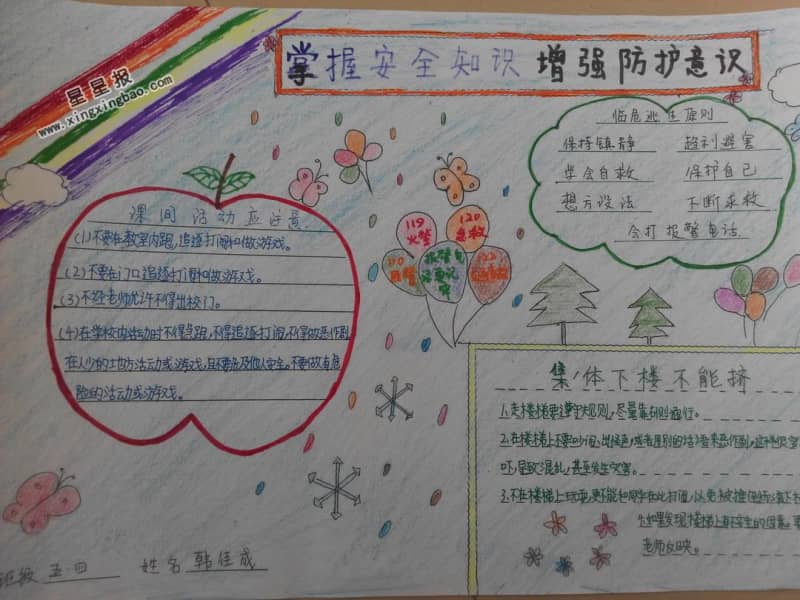 掌握安全知识 增强防护意识
星星报
www.xingxingbao.com
课间活动应注意
(1)不要在教室内跑,追逐打闹和做游戏。
(2)不要在门口追逐打闹和做游戏。
(3)不经老师允许不得出校门。
(4)在学校内活动时不得急跑,不得追逐打闹,不得做恶作剧
在人少的地方活动或游戏,且不要危及他人安全。不要做有危
险的活动或游戏。
119
火警
120
急救
110
匪警
报警电
话要记
牢
122
临危逃生原则
保持镇静 趋利避害
学会自救 保护自己
想方设法 不断求救
会打报警电话
集体下楼不能挤
1.走楼梯要遵守规则,尽量靠右侧通行。
2.在楼梯上不要吵闹、出怪声,或者
吓,导致混乱,甚至发生灾害。
3.不在楼梯上玩耍,更不能和同学在此打闹,以免被撞倒
如果发现楼梯上有不安全的因素,要
老师反映。
班级 五.四 姓名 韩佳成